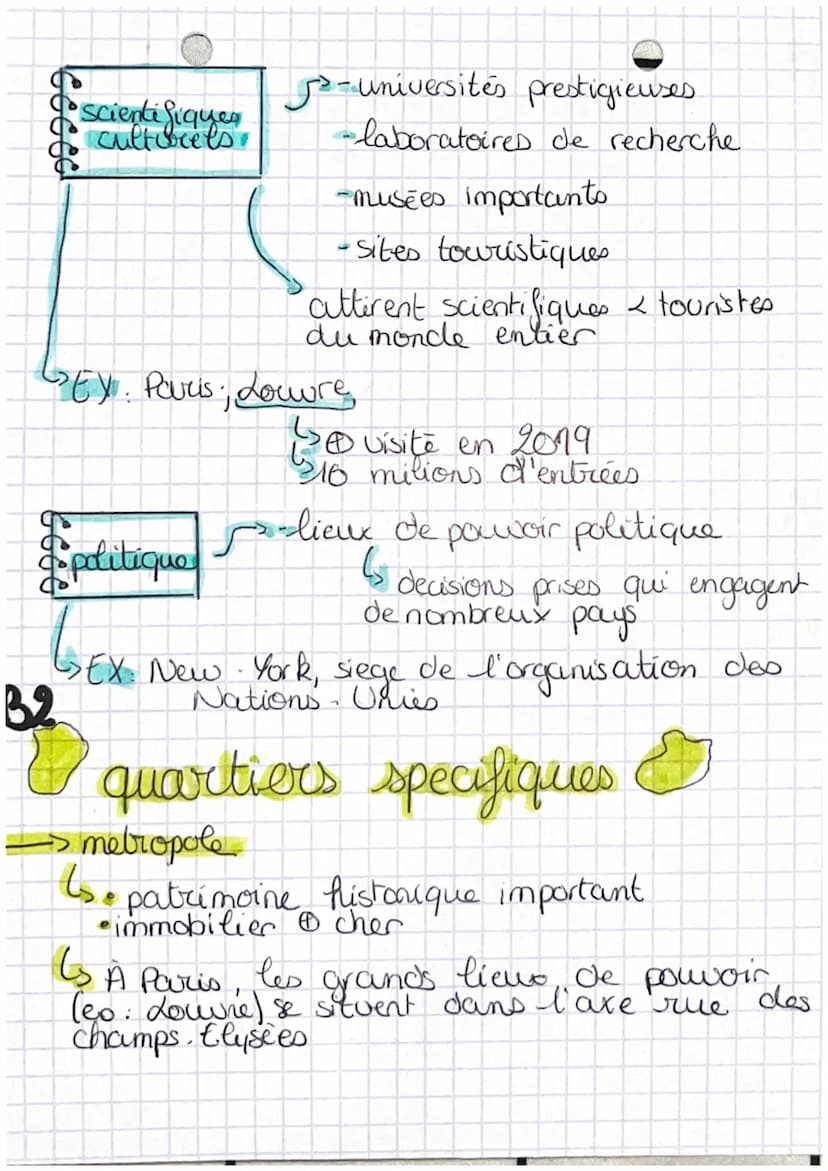 scientifiques
culturels
-universités prestigieuses
-laboratoires de recherche
-musées importants
-sites touristiques
attirent scientifiques & touristes
du monde entier
EX: Paris; Louvre
⊕ visité en 2019
10 milions d'entrées
politique
-lieux de pouvoir politique
decisions prises qui engagent
de nombreux pays
EX: New-York, siege de l'organisation des
Nations-Unies
B2
quartiers specifiques
→ metropole
• patrimoine historique important
• immobilier ⊕ cher
À Paris, les grands lieux de pouvoir
(eo: Louvre) se situent dans l'axe rue des
champs-Elysées